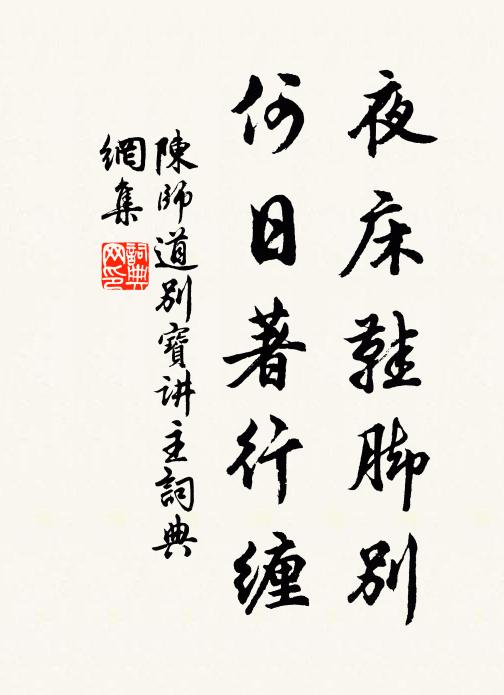 夜床鞋脚别
何日著行缠
陳師道别寶讲主詞典
網集
詞典
网印